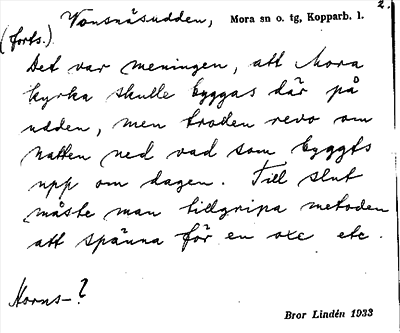 2.
Vonsnäsudden, Mora sn o. tg, Kopparb. l.
(forts.)
Det var meningen, att Mora
kyrka skulle byggas där på
udden, men trollen revo om
natten ned vad som byggts
upp om dagen. Till slut
måste man tillgripa metoden
att spänna för en oxe etc.
Horns-?
Bror Lindén 1933